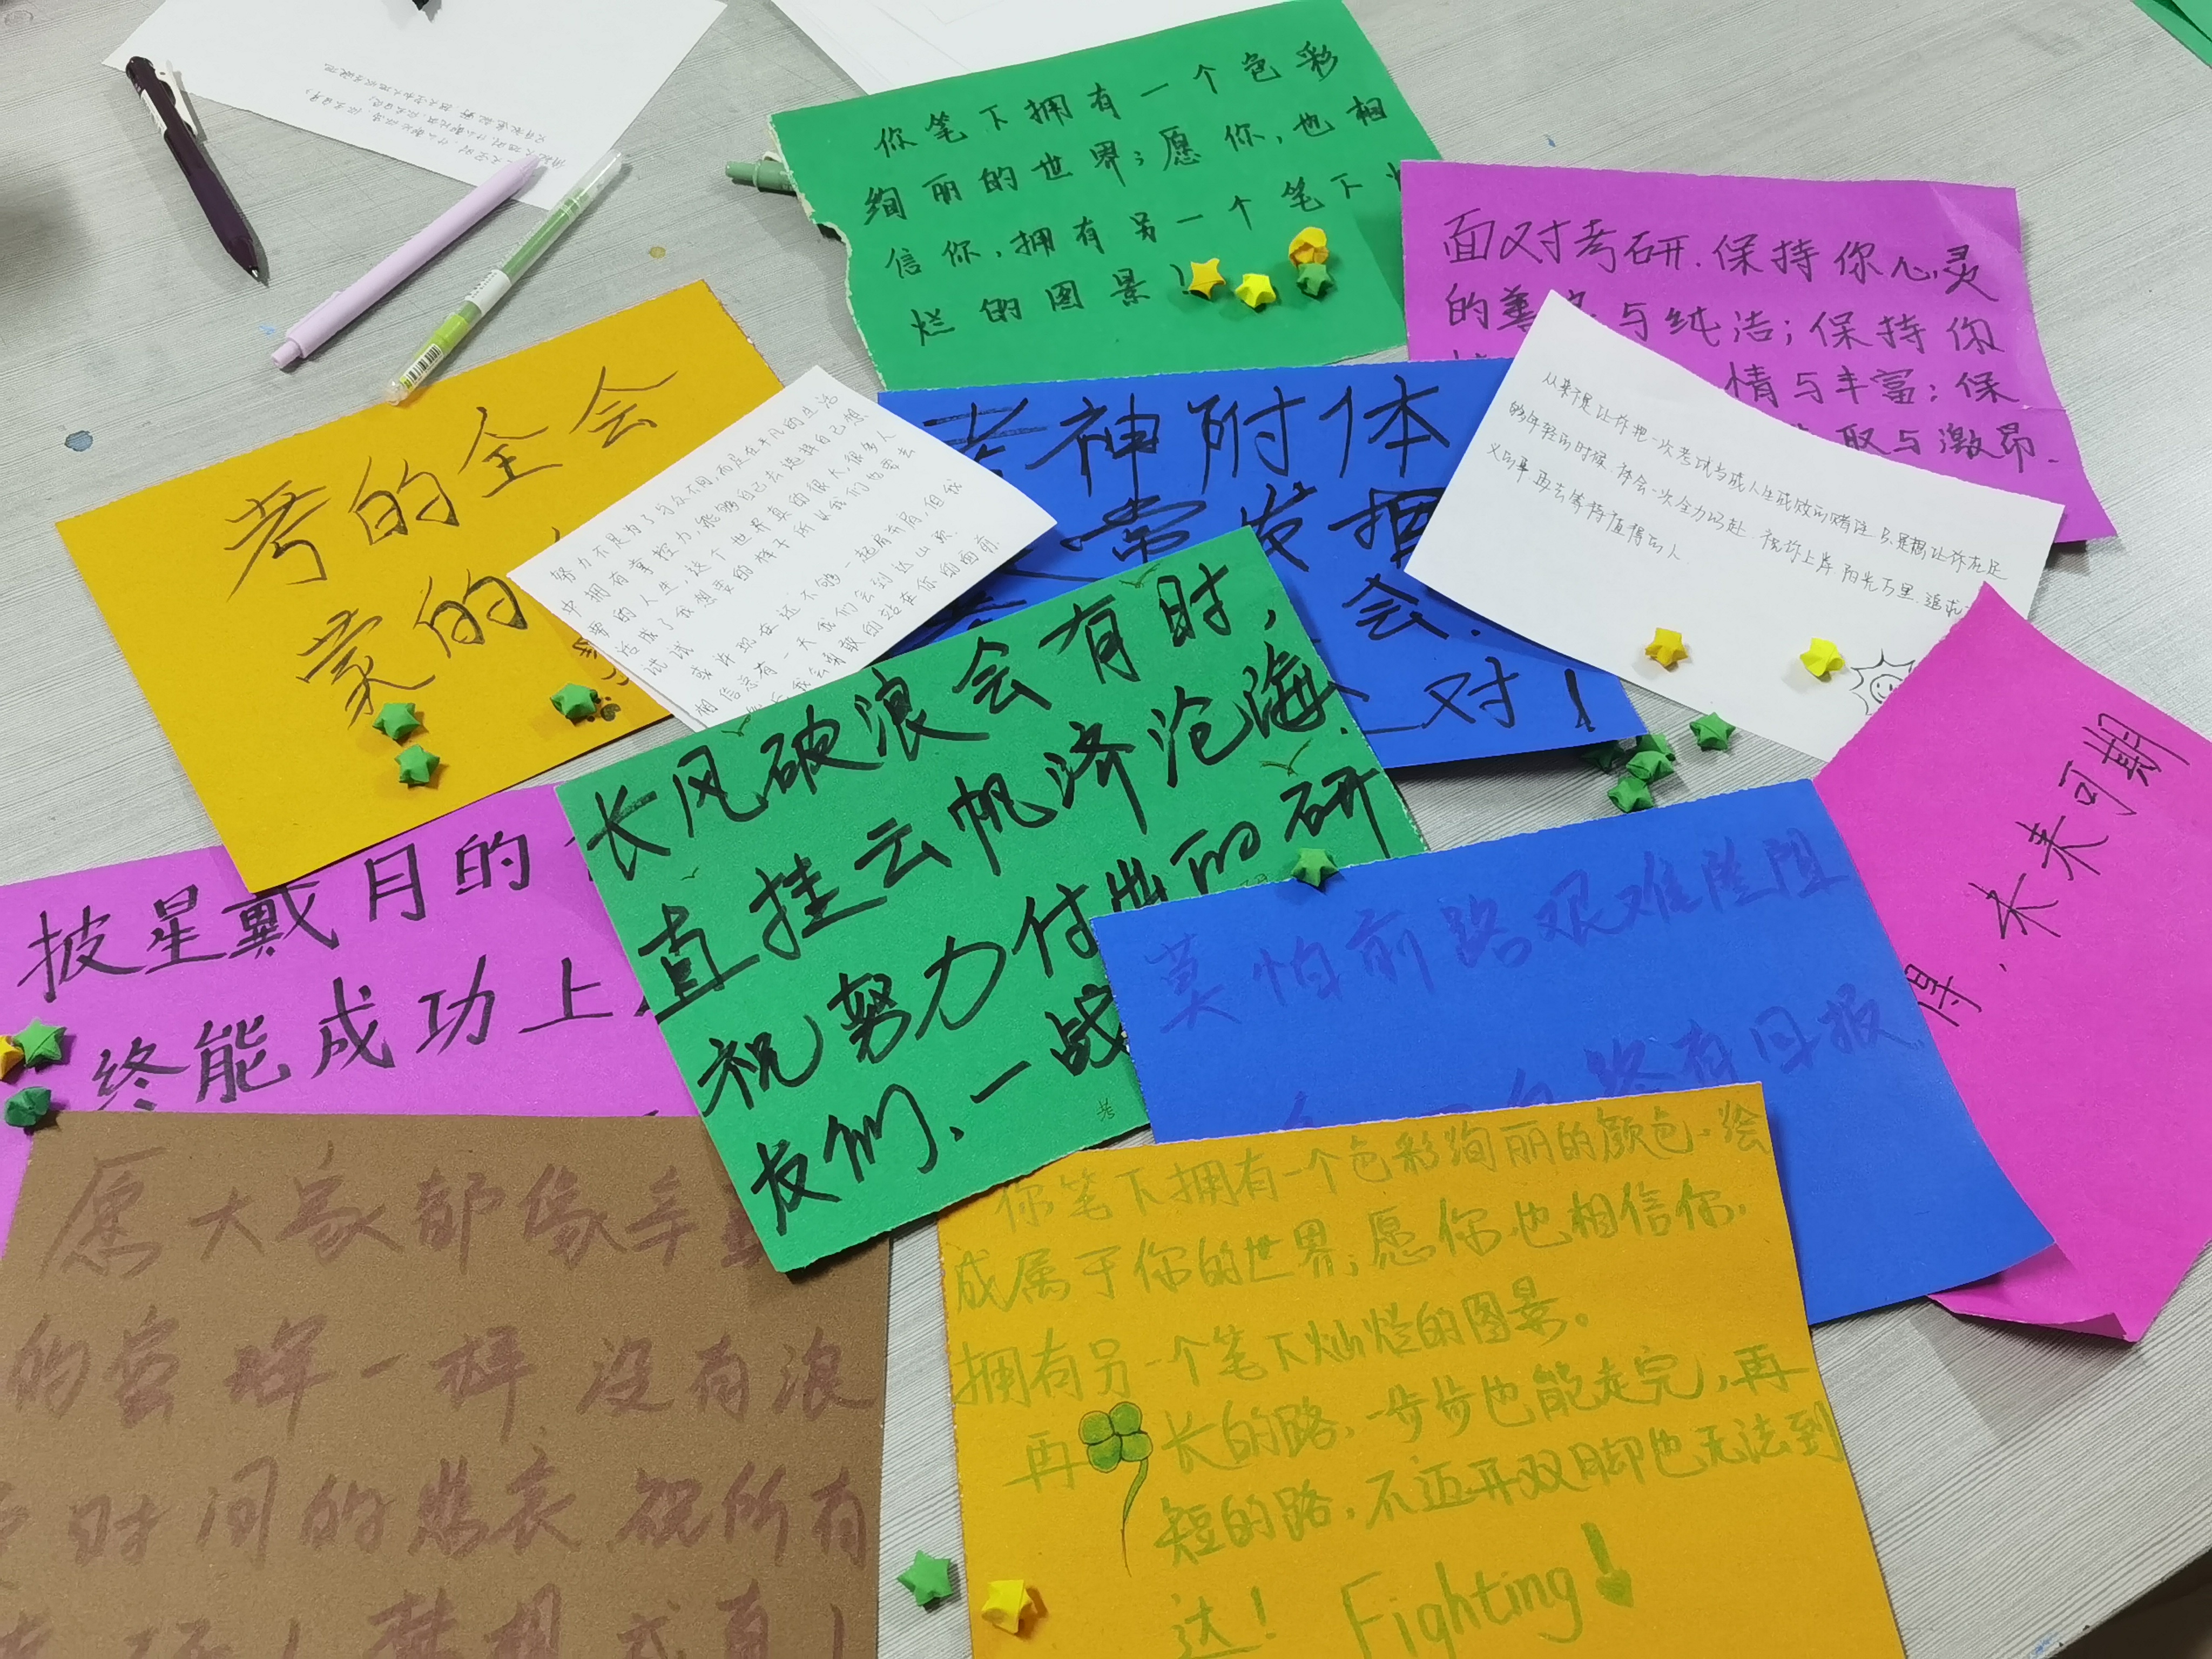 你笔下拥有一个色彩
绚丽的世界；愿你，也相
信你，拥有另一个笔下
烂的图景！
面对考研.保持你心灵
的善 与纯洁；保持你
情与丰富；保
取与激昂.
考的全会
蒙的
努力不是为了与众不同，而是在平凡的生活
中拥有掌控力，能够自己去选择自己想
要的人生，这个世界真的很大，很多人
活成了我想要的样子所以我们也要去
试试 或许现在还不够一起肩并肩，但我
相信总有一天我们会到达山顶
我会勇敢的站在你的面前
考神附体
常发挥
会.
对！
从来不是让你把一次考试当成人生成败的赌注 只是想让你在足
够年轻的时候.体会一次全力以赴.祝你上岸 阳光万里.追求
义的事 再去等待值得的人
长风破浪会有时，
直挂云帆济沧海.
祝努力付出的研
友们、一战
考
披星戴月的
终能成功上
莫怕前路艰难险阻
终有回报.
未来可期
愿大家都像辛
的 一样.没有浪
时间的悲哀.祝所有
梦想成真！
你笔下拥有一个色彩绚丽的颜色.绘
成属于你的世界；愿你也相信你.
拥有另一个笔下灿烂的图景。
再长的路，一步步也能走完，再
短的路，不迈开双脚也无法到
达！ Fighting！